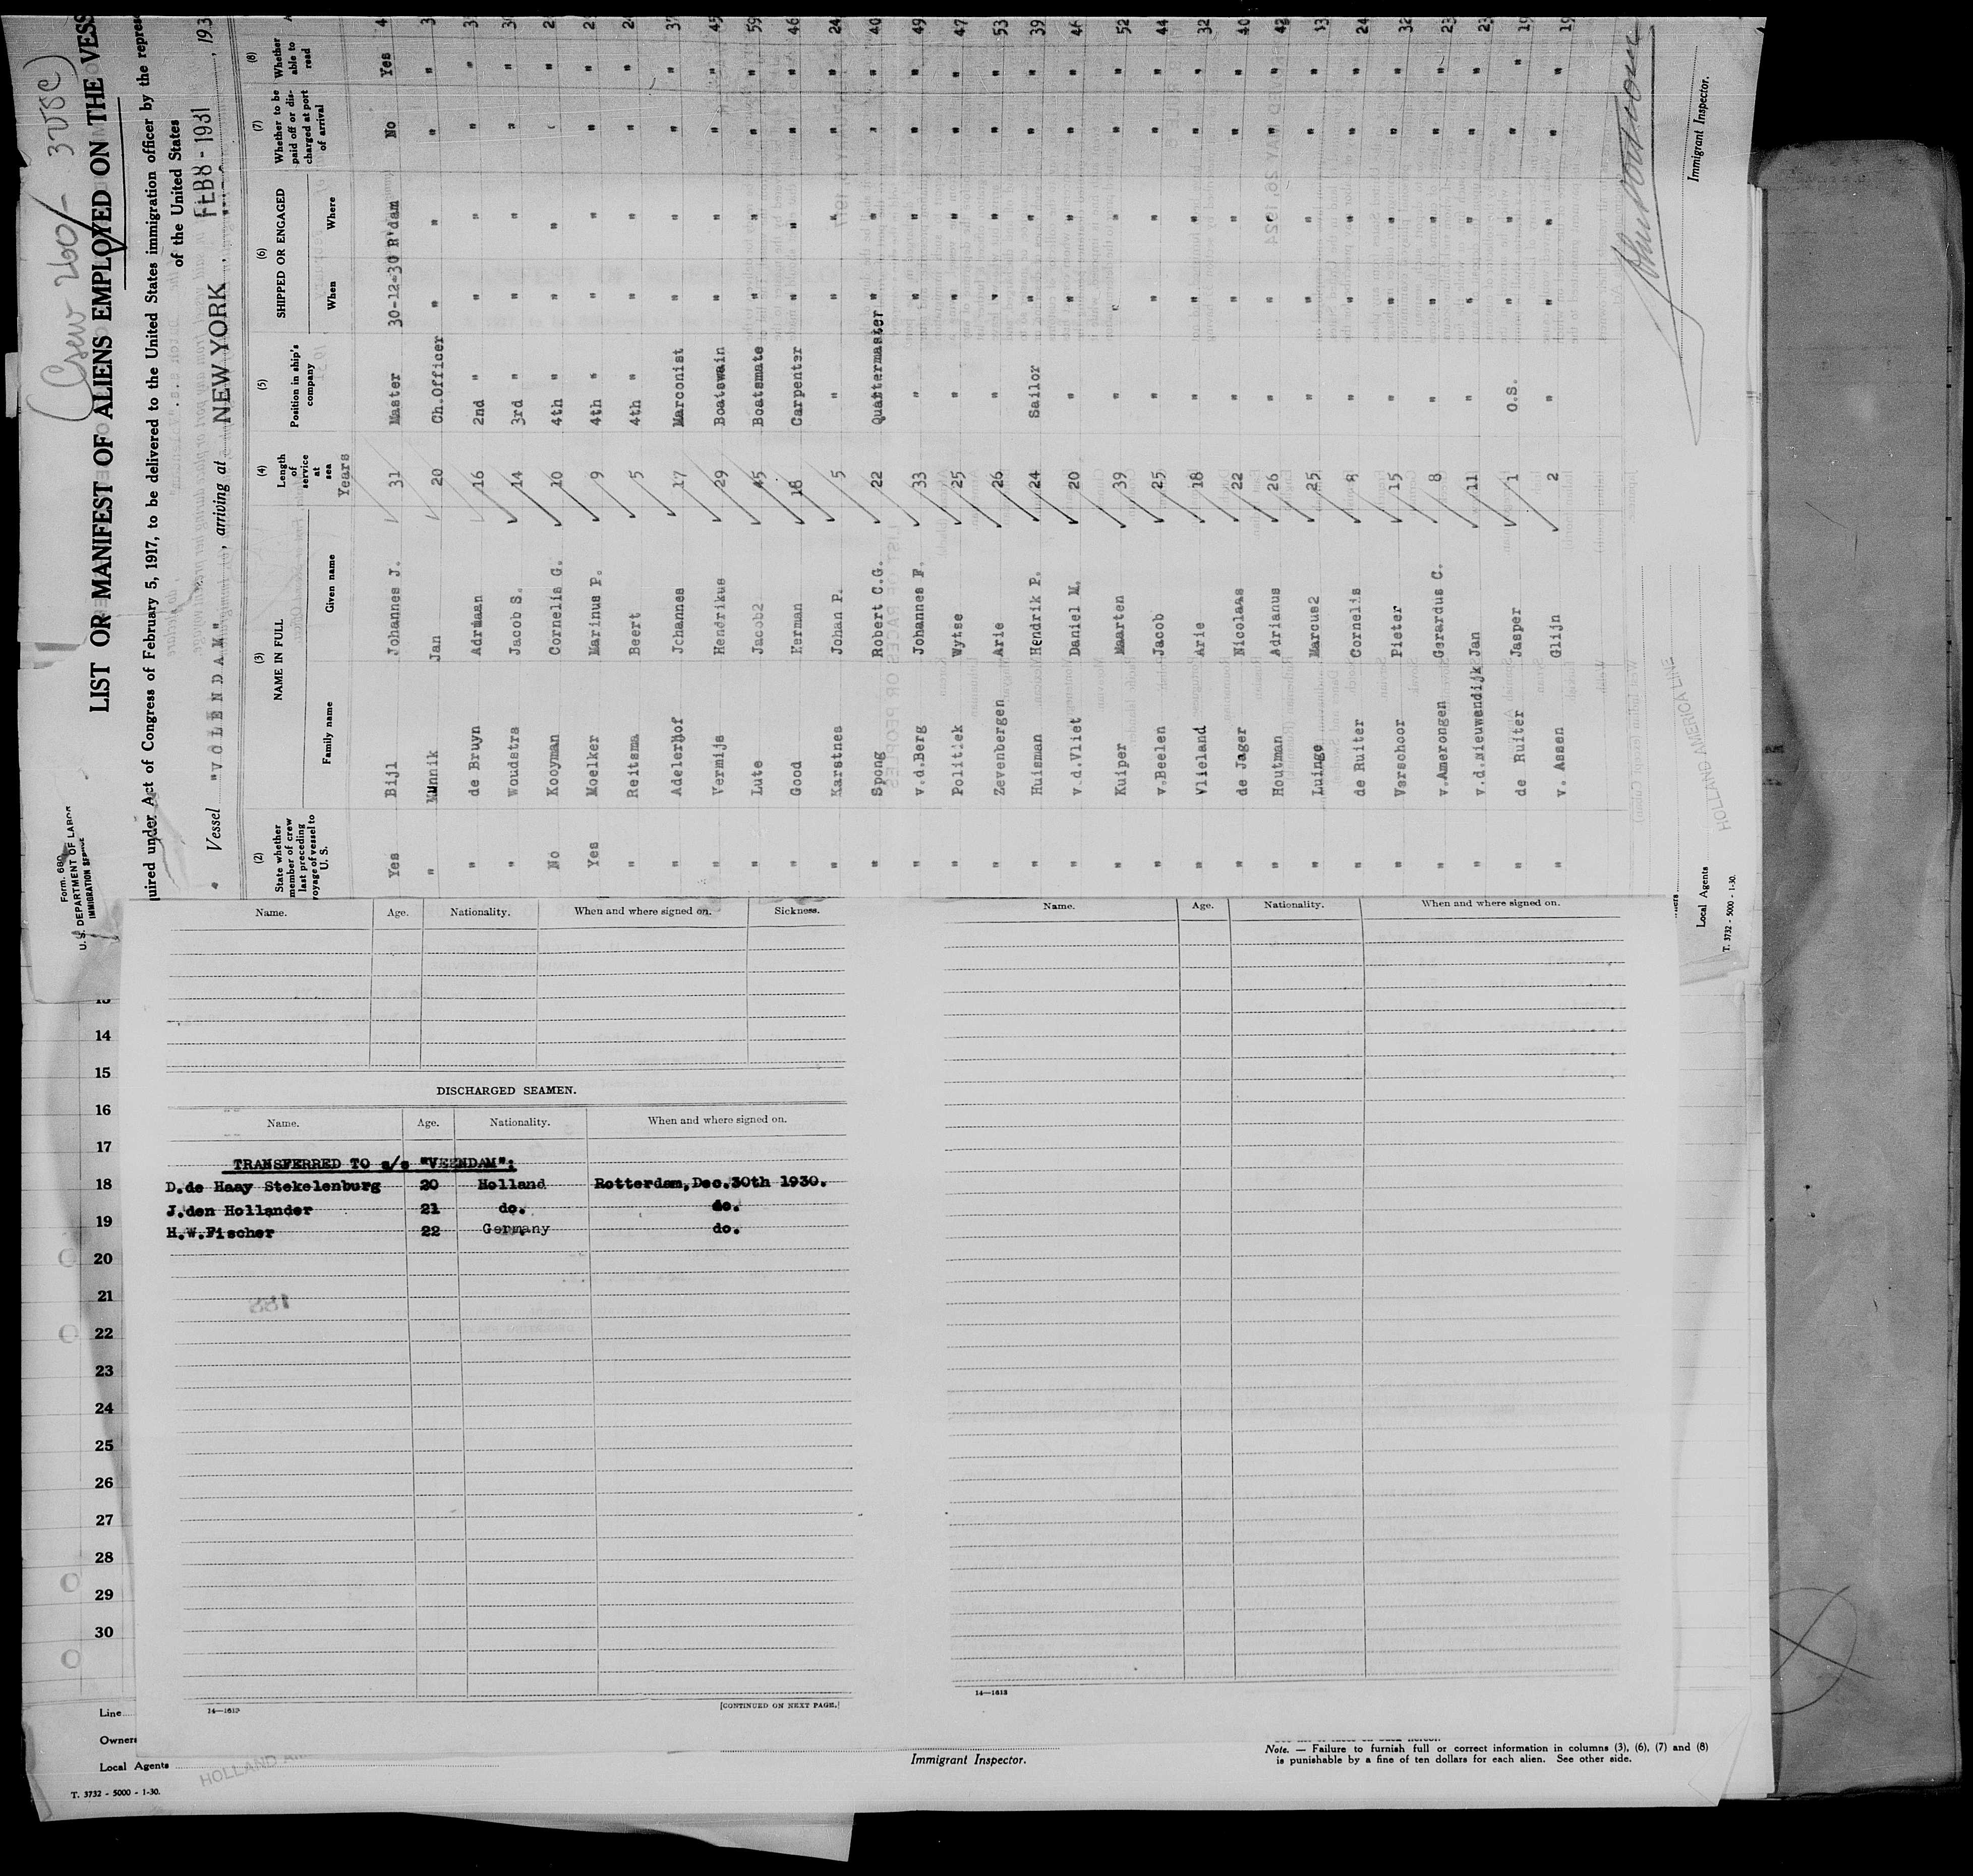 Crew 260/- 3USC)
LIST OR MANIFEST OF ALIENS EMPLOYED ON THE VESS
quired under Act of Congress of February 5, 1917, to be delivered to the United States immigration officer by the repres
of the United States
Vessel "VOLENDAM", arriving at NEW YORK, FEB 8 - 1931, 193
Form. 680
U. S. DEPARTMENT OF LABOR
IMMIGRATION SERVICE
(2) State whether member of crew last preceding voyage of vessel to U. S. (3) NAME IN FULL Family name Given name (4) Length of service at sea (5) Position in ship's company (6) SHIPPED OR ENGAGED When Where (7) Whether to be paid off or discharged at port of arrival (8) Whether able to read
Years
Yes Bijl Johannes J. 31 Master 30-12-30 R'dam No Yes
" Munnik Jan 20 Ch.Officer " " " "
" de Bruyn Adriaan 16 2nd " " " " "
" Woudstra Jacob S. 14 3rd " " " " "
No Kooyman Cornelis G. 10 4th " " " "
Yes Moelker Marinus P. 9 4th " " " " "
" Reitsma Beert 5 4th " " " " "
" Adelerhof Johannes 17 Marconist " " " " 37
" Vermijs Hendrikus 29 Boatswain " " " " 45
" Lute Jacob2 45 Boatsmate " " " " 59
" Good Herman 18 Carpenter " " " " 46
" Karstnes Johan P. 5 " " " " " 24
" Spong Robert C.G. 22 Quartermaster " " " " 40
" v.d.Berg Johannes F. 33 " " " " " 49
" Politiek Wytse 25 " " " " " 47
" Zevenbergen Arie 26 " " " " " 53
" Huisman Hendrik P. 24 Sailor " " " " 39
" v.d.Vliet Daniel M. 20 " " " " " 44
" Kuiper Maarten 39 " " " " 52
" v.Beelen Jacob 25 " " " " " 44
" Vlieland Arie 18 " " " " " 32
" de Jager Nicolaas 22 " " " " " 40
" Houtman Adrianus 26 " " " " " 42
" Luinge Marcus2 25 " " " " "
" de Ruiter Cornelis " " " " " 24
" Verschoor Pieter 15 " " " " " 32
" v.Amerongen Gerardus C. 8 " " " " " 23
" v.d.Nieuwendijk Jan 11 " " " " " 23
" de Ruiter Jasper 1 O.S. " " " " 19
" v. Assen Glijn 2 " " " " " 19
Immigrant Inspector.
HOLLAND AMERICA LINE
Local Agents
T. 3732 - 5000 - 1-30.
Name. Age. Nationality. When and where signed on. Sickness.
DISCHARGED SEAMEN.
Name. Age. Nationality. When and where signed on.
TRANSFERRED TO s/s "VEENDAM":
D.de Haay Stekelenburg 20 Holland Rotterdam,Dec.30th 1930.
J.den Hollander 21 do. do.
H.W.Fischer 22 Germany do.
14—1613 [CONTINUED ON NEXT PAGE.]
Name. Age. Nationality. When and where signed on.
14—1613
13
14
15
16
17
18
19
20
21
22
23
24
25
26
27
28
29
30
Line
Owners
Local Agents
HOLLAND AM
T. 3732 - 5000 - 1-30.
Immigrant Inspector.
Note. — Failure to furnish full or correct information in columns (3), (6), (7) and (8)
is punishable by a fine of ten dollars for each alien. See other side.